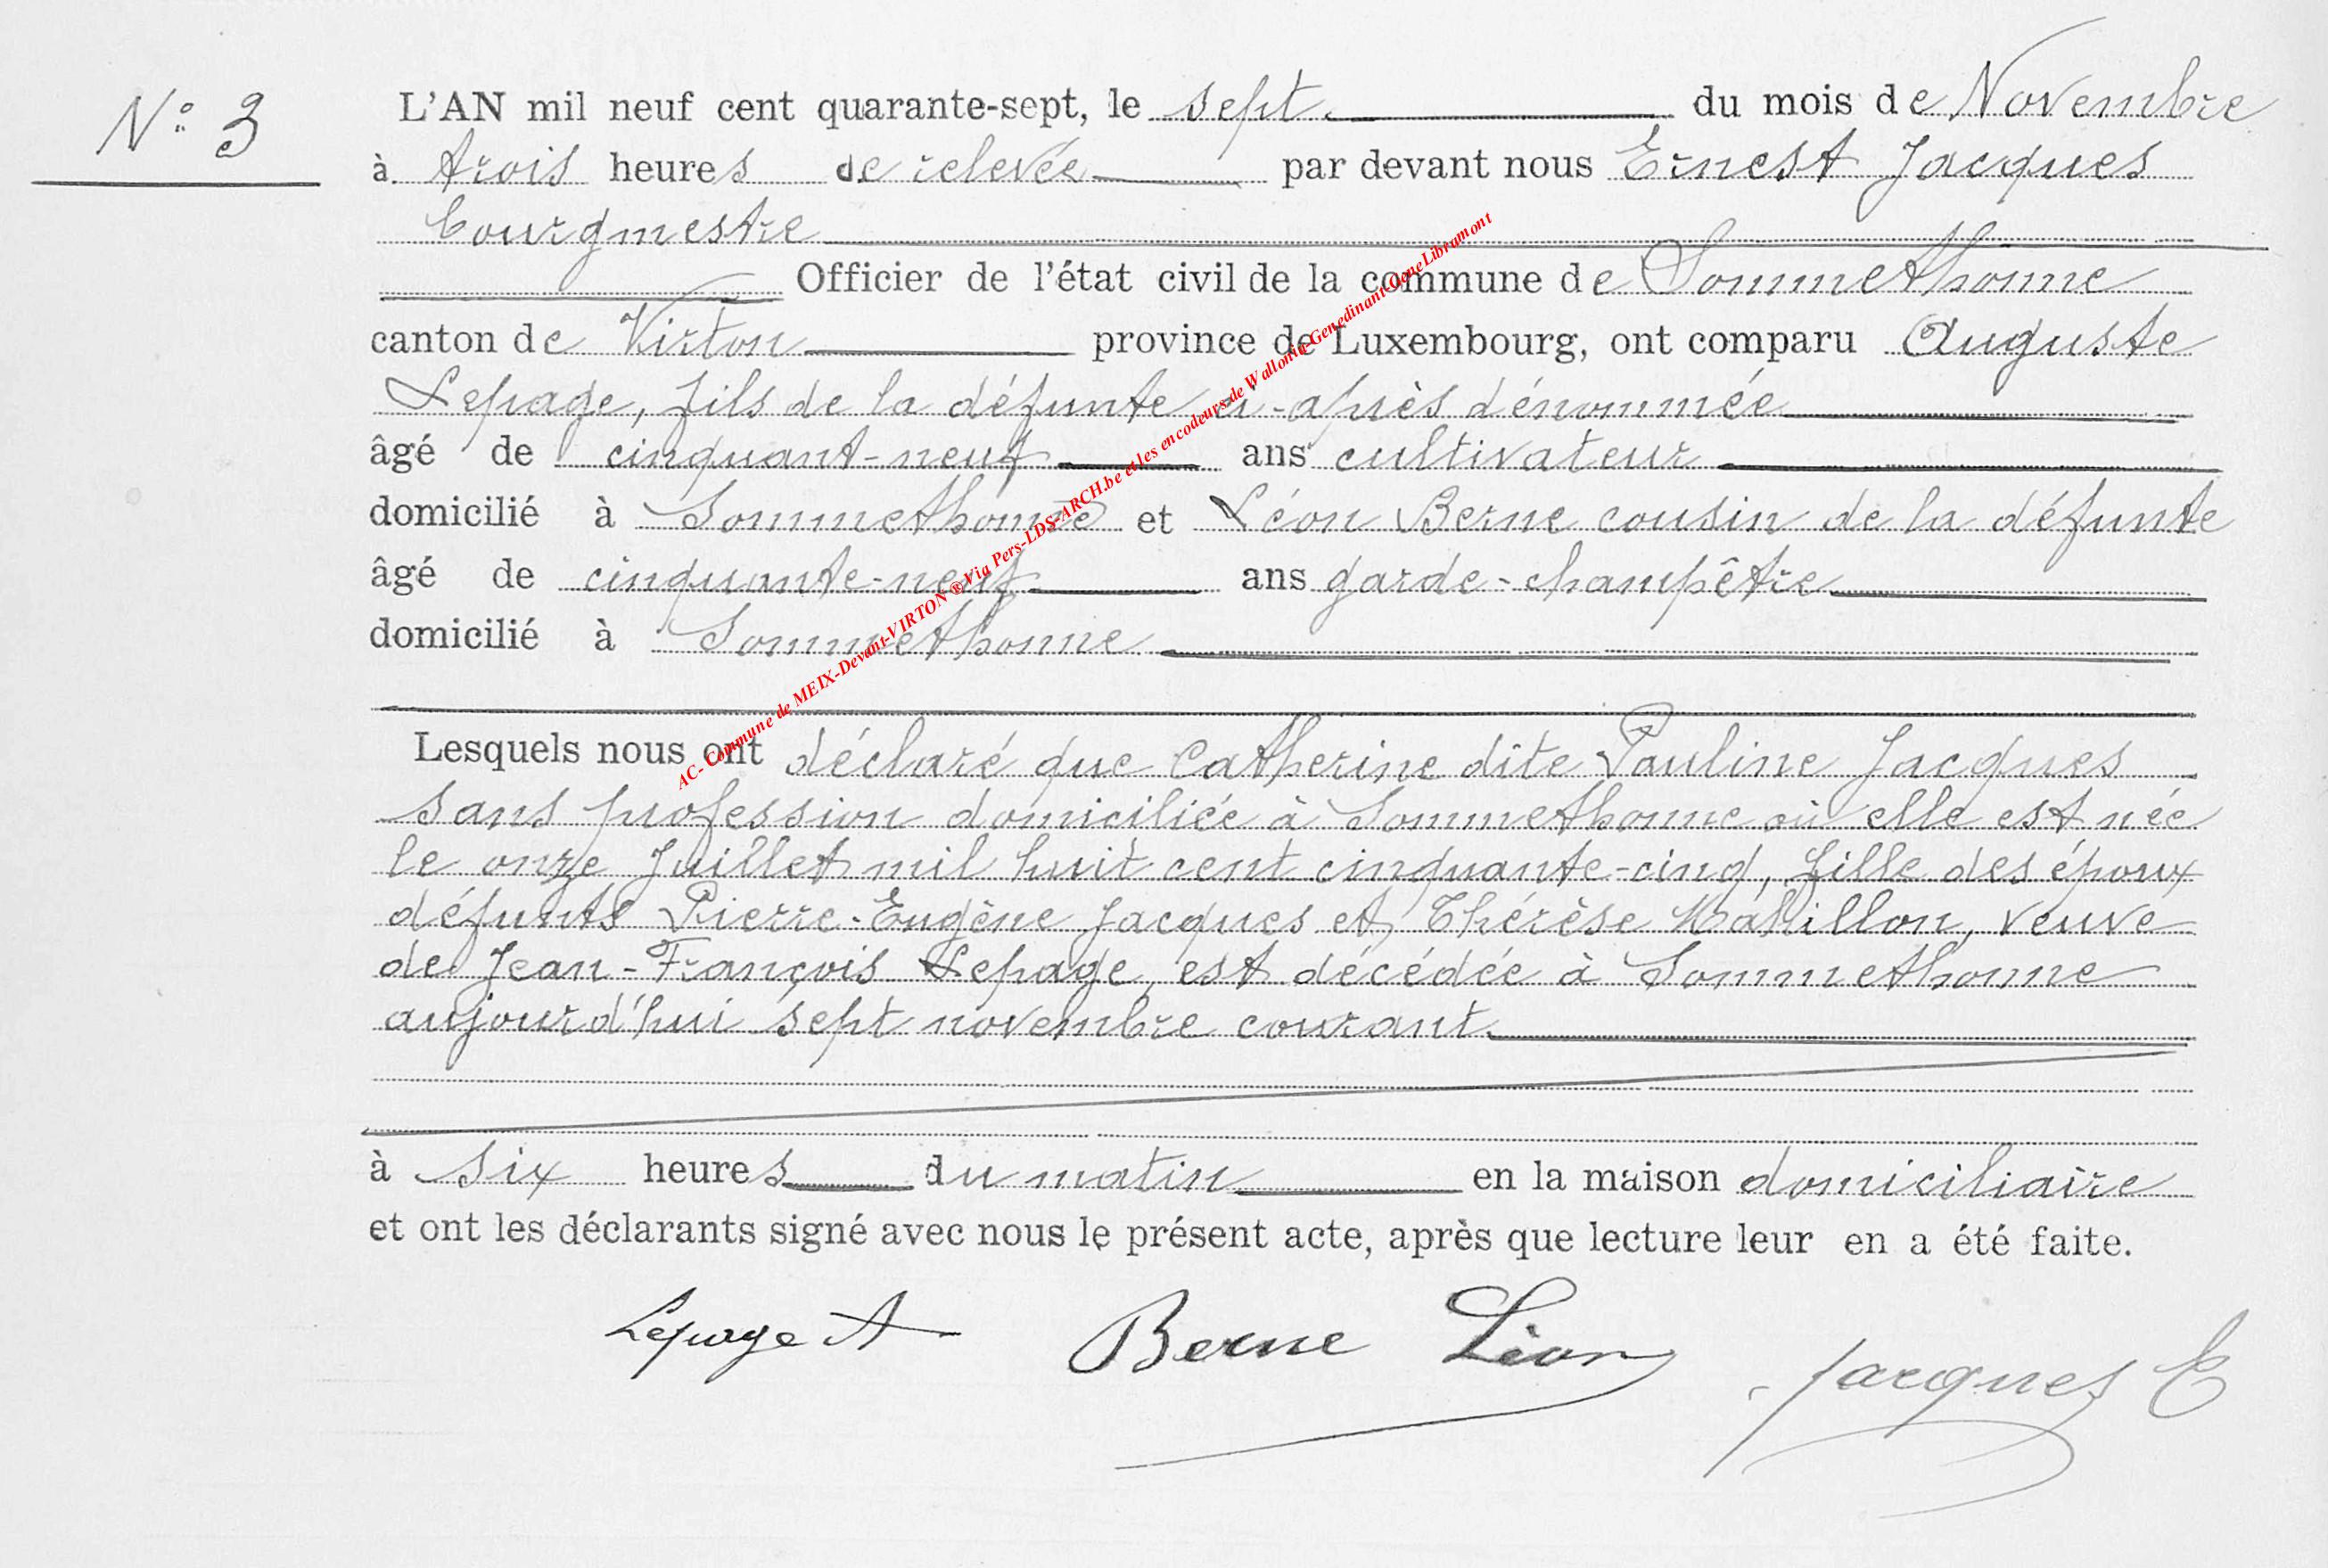 N° 3
L'AN mil neuf cent quarante-sept, le sept du mois de Novembre
à trois heures de relevée par devant nous Ernest Jacques
bourgmestre
Officier de l'état civil de la commune de Sommethonne
canton de Virton province de Luxembourg, ont comparu Auguste
Lepage, fils de la défunte ci-après dénommée
âgé de cinquant-neuf ans cultivateur
domicilié à Sommethonne et Léon Berne cousin de la défunte
âgé de cinquante-neuf ans garde-champêtre
domicilié à Sommethonne
Lesquels nous ont déclaré que Catherine dite Pauline Jacques
sans profession domiciliée à Sommethonne où elle est née
le onze Juillet mil huit cent cinquante-cinq, fille des époux
défunts Pierre-Eugène Jacques et Thérèse Mahillon, veuve
de Jean-François Lepage, est décédée à Sommethonne
aujourd'hui sept novembre courant.
à six heures du matin en la maison domiciliaire
et ont les déclarants signé avec nous le présent acte, après que lecture leur en a été faite.
Lepage A Berne Léon Jacques E
AC- Commune de MEIX-Devant-VIRTON ® Via Pers-LDS-ARCH.be et les encodeurs de Wallonia-Genedinant-GeneLibramont